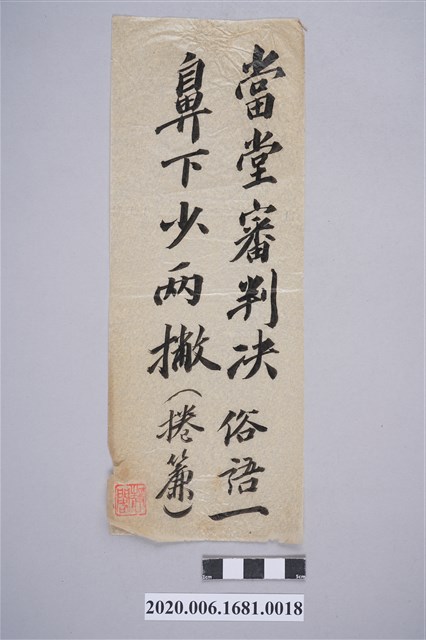 當堂審判决 俗語一
鼻下少两撇(捲簾)
2cm 3cm
2020.006.1681.0018